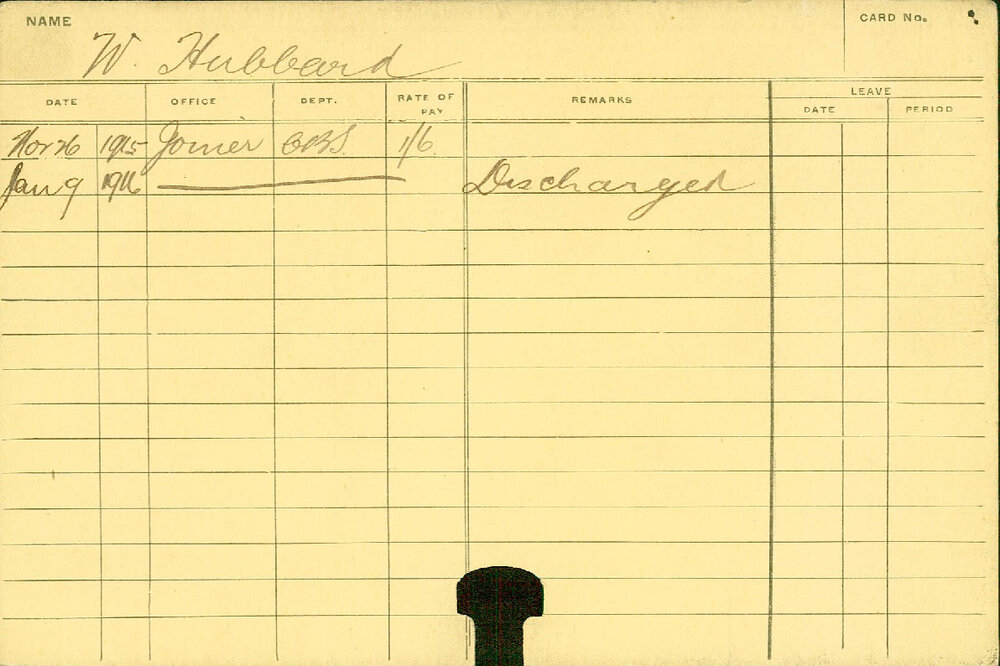 NAME W. Hubbard CARD No.
DATE OFFICE DEPT. RATE OF PAY REMARKS LEAVE
DATE PERIOD
Nov 26 1915 Joiner 1/6
Jan 9 1916 Discharged